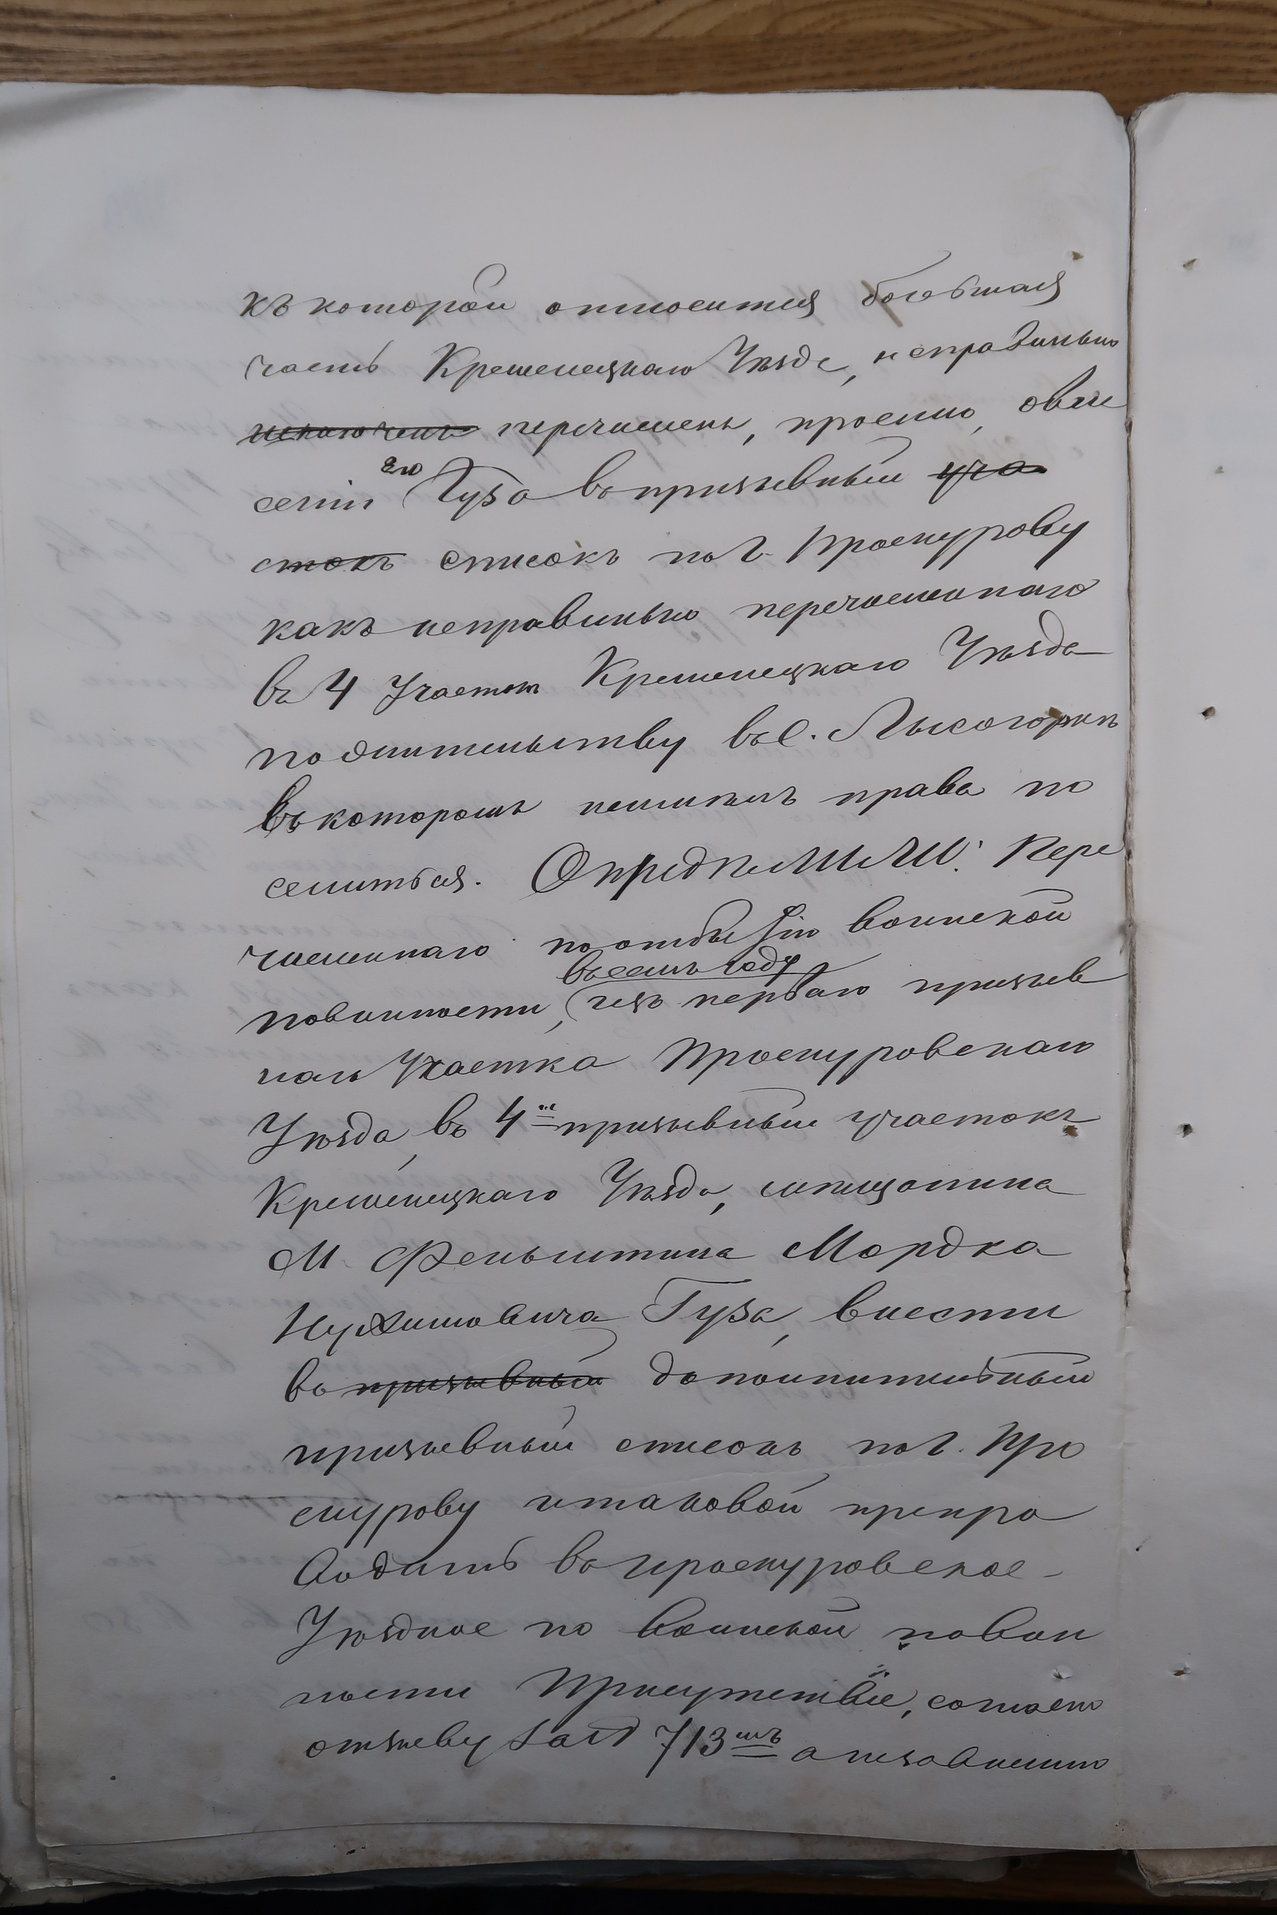 къ которой относится большая
часть Кременецкаго Уѣзда, неправильно
исключенъ перечисленъ, просило, овне
сеніи его Гуза въ призывный уча
стокъ списокъ по г. Проскурову
какъ неправильно перечисленнаго
въ 4 Участокъ Кременецкаго Уѣзда
по жительству въ с. Лысогоркѣ
въ которомъ неимѣлъ права по
селиться. Опредѣлили: Пере
численнаго по отбытію воинской
повинности, въ семъ году изъ перваго призыв
наго Участка Проскуровскаго
Уѣзда, въ 4й призывный участокъ
Кременецкаго Уѣзда, мѣщанина
М. Фельштина Мордка
Нухимовича Гуза, внести
въ призывный дополнительный
призывный списокъ по г. Про
скурову и таковой препро
водить въ Проскуровское
Уѣздное по воинской повин
ности Присутствіе, согласно
отзыву за № 713мъ а исковаймо